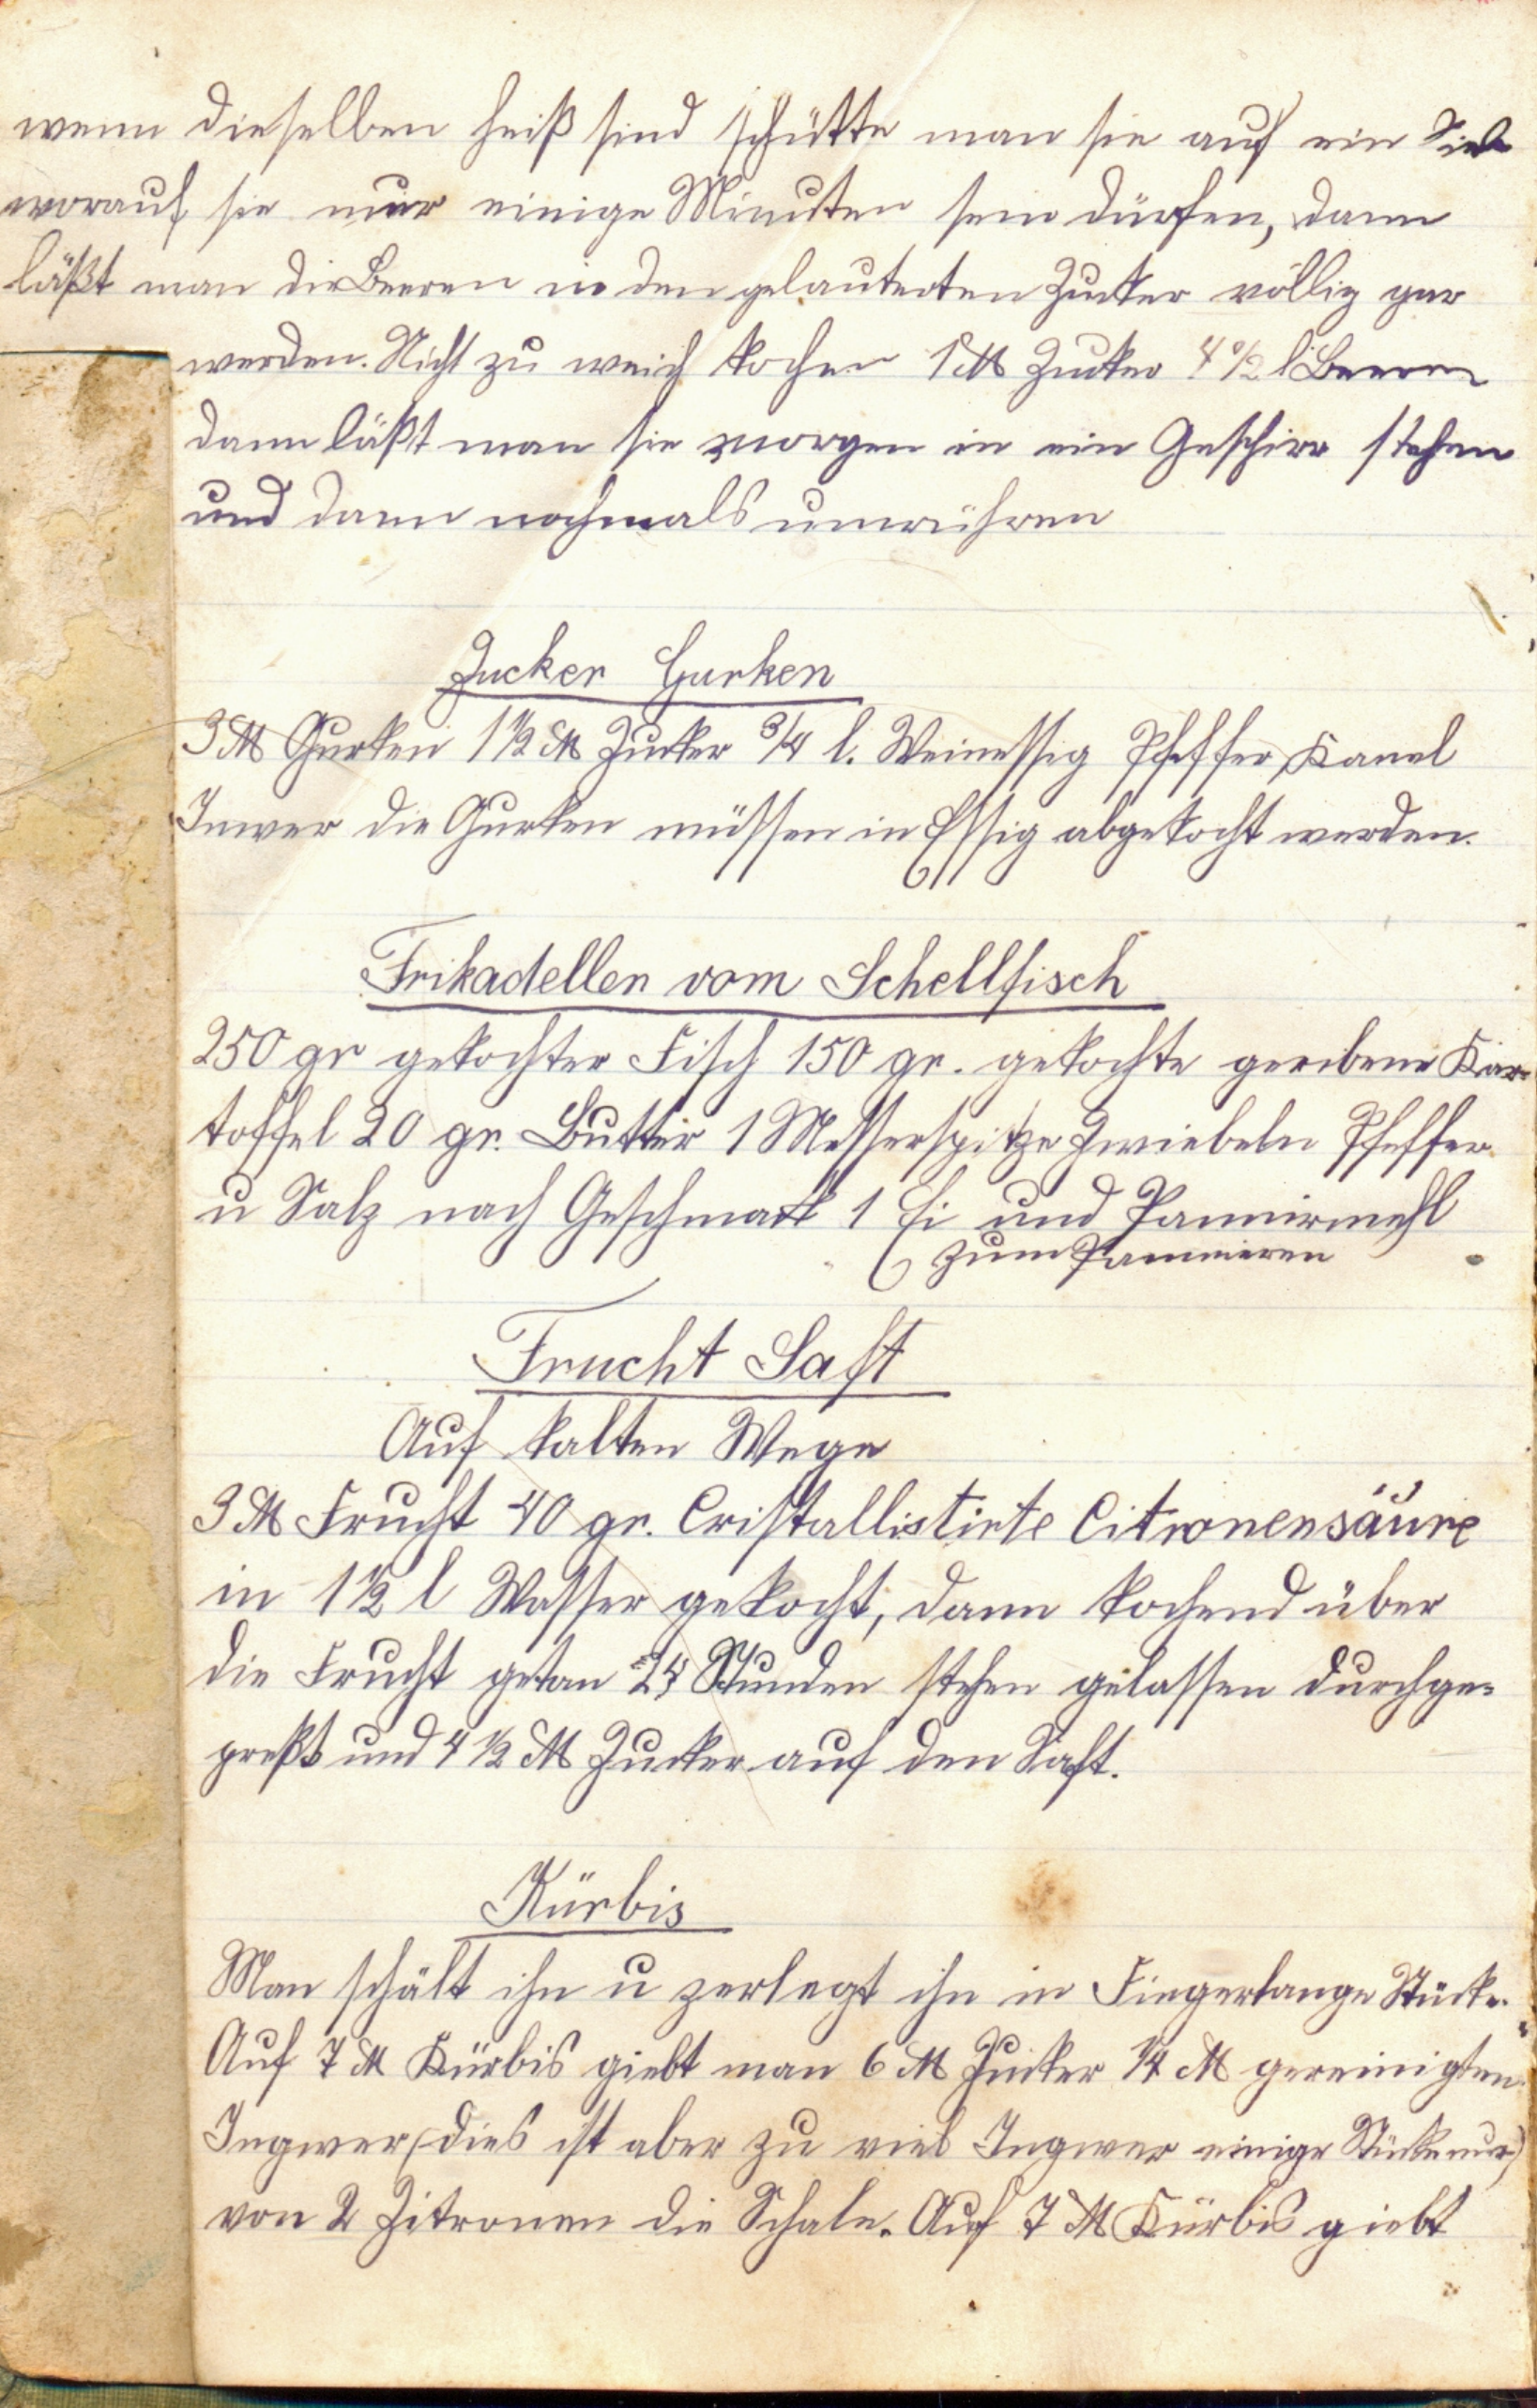 wenn dieselben heiß sind schütte man sie auf ein Sieb
worauf sie nur einige Minuten sein dürfen, dann
läßt man die Beeren in den gelauterten Zucker völlig gar
werden. Nicht zu weich kochen 1 ℔ Zucker 4 ½ l Beeren
dann läßt man sie morgen in ein Geschirr stehen
und dann nochmals umrühren
Zucker Gurken
3 ℔ Gurken 1 ½ ℔ Zucker ¾ l. Weinessig Pfeffer, Kanel
Inwer die Gurken müssen in Essig abgekocht werden.
Frikadellen vom Schellfisch
250 gr gekochter Fisch 150 gr. gekochte geribene Kar-
toffel 20 gr. Butter 1 Messerspitze Zwiebeln Pfeffer
u Salz nach Geschmack 1 Ei und Pannirmehl
zum Pannieren
Frucht Saft
Auf kalten Wege
3 ℔ Frucht 40 gr. Cristallistirte Citronensäure
in 1 ½ l Wasser gekocht, dann kochend über
die Frucht getan 24 Stunden stehen gelassen durchge=
preßt und 4 ½ ℔ Zucker auf den Saft.
Kürbis
Man schält ihn u zerlegt ihn in Fingerlange Stücke.
Auf 7 ℔ Kürbis giebt man 6 ℔ Zucker ¼ ℔ gereinigten
Ingwer, (dies ist aber zu viel Ingwer einige Stücke nur)
von 2 Zitronen die Schale. Auf 7 ℔ Kürbis giebt